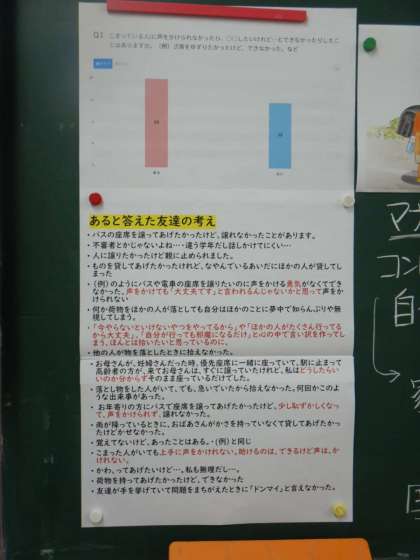 Q1 こまっている人に声をかけられなかったり、〇〇したいけれど…とできなかったりしたことはありますか。(例)迷惑をゆずりたかったけど、できなかった、など
あると答えた友達の考え
・バスの座席を譲ってあげたかったけど、譲れなかったことがあります。
・不審者とかじゃないよね…・違う学年だし話しかけてにくい…
・人に譲りたかったけど親に止められました。
・ものを貸してあげたかったけれど、なやんでいるあいだにほかの人が貸してしまった
・(例)のようにバスや電車の座席を譲りたいのに声をかける勇気がなくてできなかった。声をかけても「大丈夫です」と言われるんじゃないかと思って声をかけられない
・何か荷物をほかの人が落としても自分はほかのことに夢中で知らんぷりや無視してしまう。
・「今やらないといけないやつをやってるから」や「ほかの人がたくさん行ってるから大丈夫」、「自分が行っても邪魔になるだけ」と心の中で言い訳を作ってしまう。ほんとは拾いたいと思っているのに。
・他の人が物を落としたときに拾えなかった。
・お母さんが、妊婦さんだった時、優先座席に一緒に座っていて、駅に止まって高齢者の方が、来てお母さんは、すぐに譲っていたけれど、私はどうしたらいいのか分からずそのまま座っているだけでした。
・落とし物をした人がいて、でも、急いでいたから拾えなかった。何回かこのような出来事があった。
・お年寄りの方にバスで座席を譲ってあげたかったけど、少し恥ずかしくなって、声をかけられず、譲れなかった。
・雨が降っているときに、おばあさんがかさを持っていなくて貸してあげたかったけどかせなかった。
・覚えてないけど、あったことはある。・(例)と同じ
・こまった人がいても上手に声をかけれない。助けるのは、できるけど声は、かけれない。
・かわってあげたいけど…。私も無理だし…。
・荷物を持ってあげたかったけど、できなかった
・友達が手を挙げていて問題をまちがえたときに「ドンマイ」と言えなかった。
マナ
コン
自